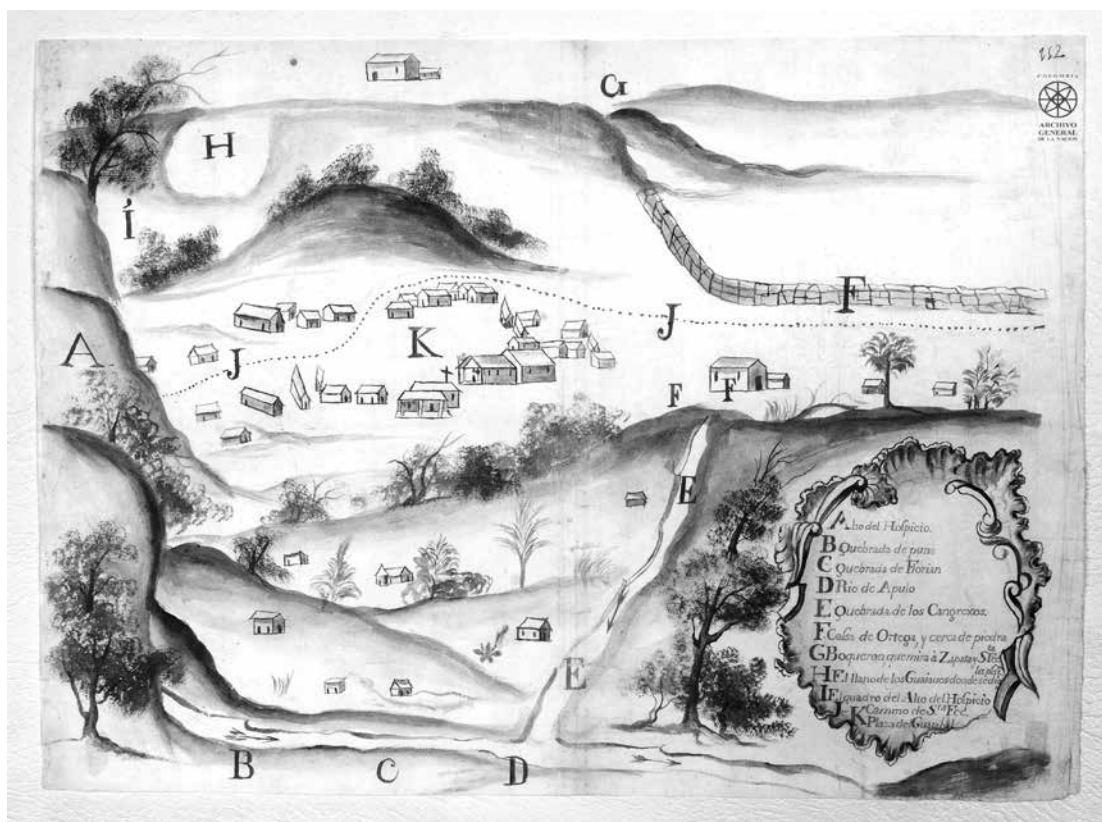 252
COLOMBIA
ARCHIVO
GENERAL
DE LA NACION
G
H
Í
F
J
A
J
K
F
F
E
E
B
C
D
A Alto del Hospicio.
B Quebrada de
C Quebrada de Florian
D Rio de Apulo
E Quebrada de los Cangrexos.
F Casa de Ortega, y cerca de piedra
G Boqueron que mira à Zapata y Sta Fee
H El llano de los donde se dio
I El quadro del Alto del Hospicio
J Camino de Sta. Fee.
K Plaza del